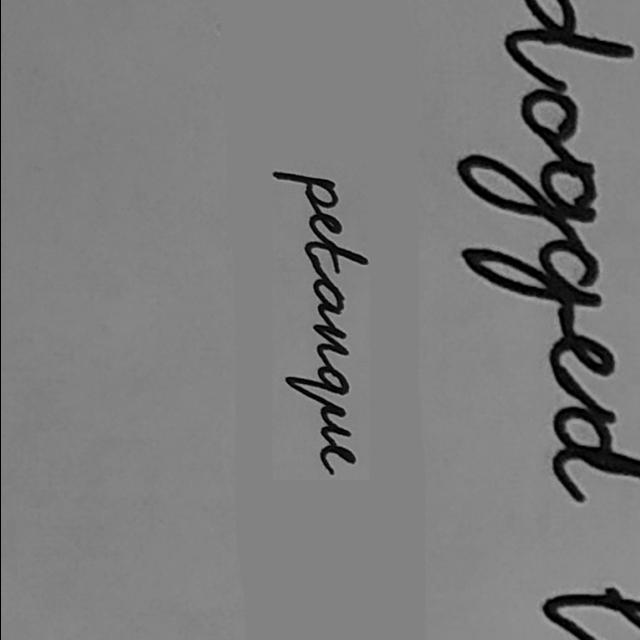 dogged
petanque